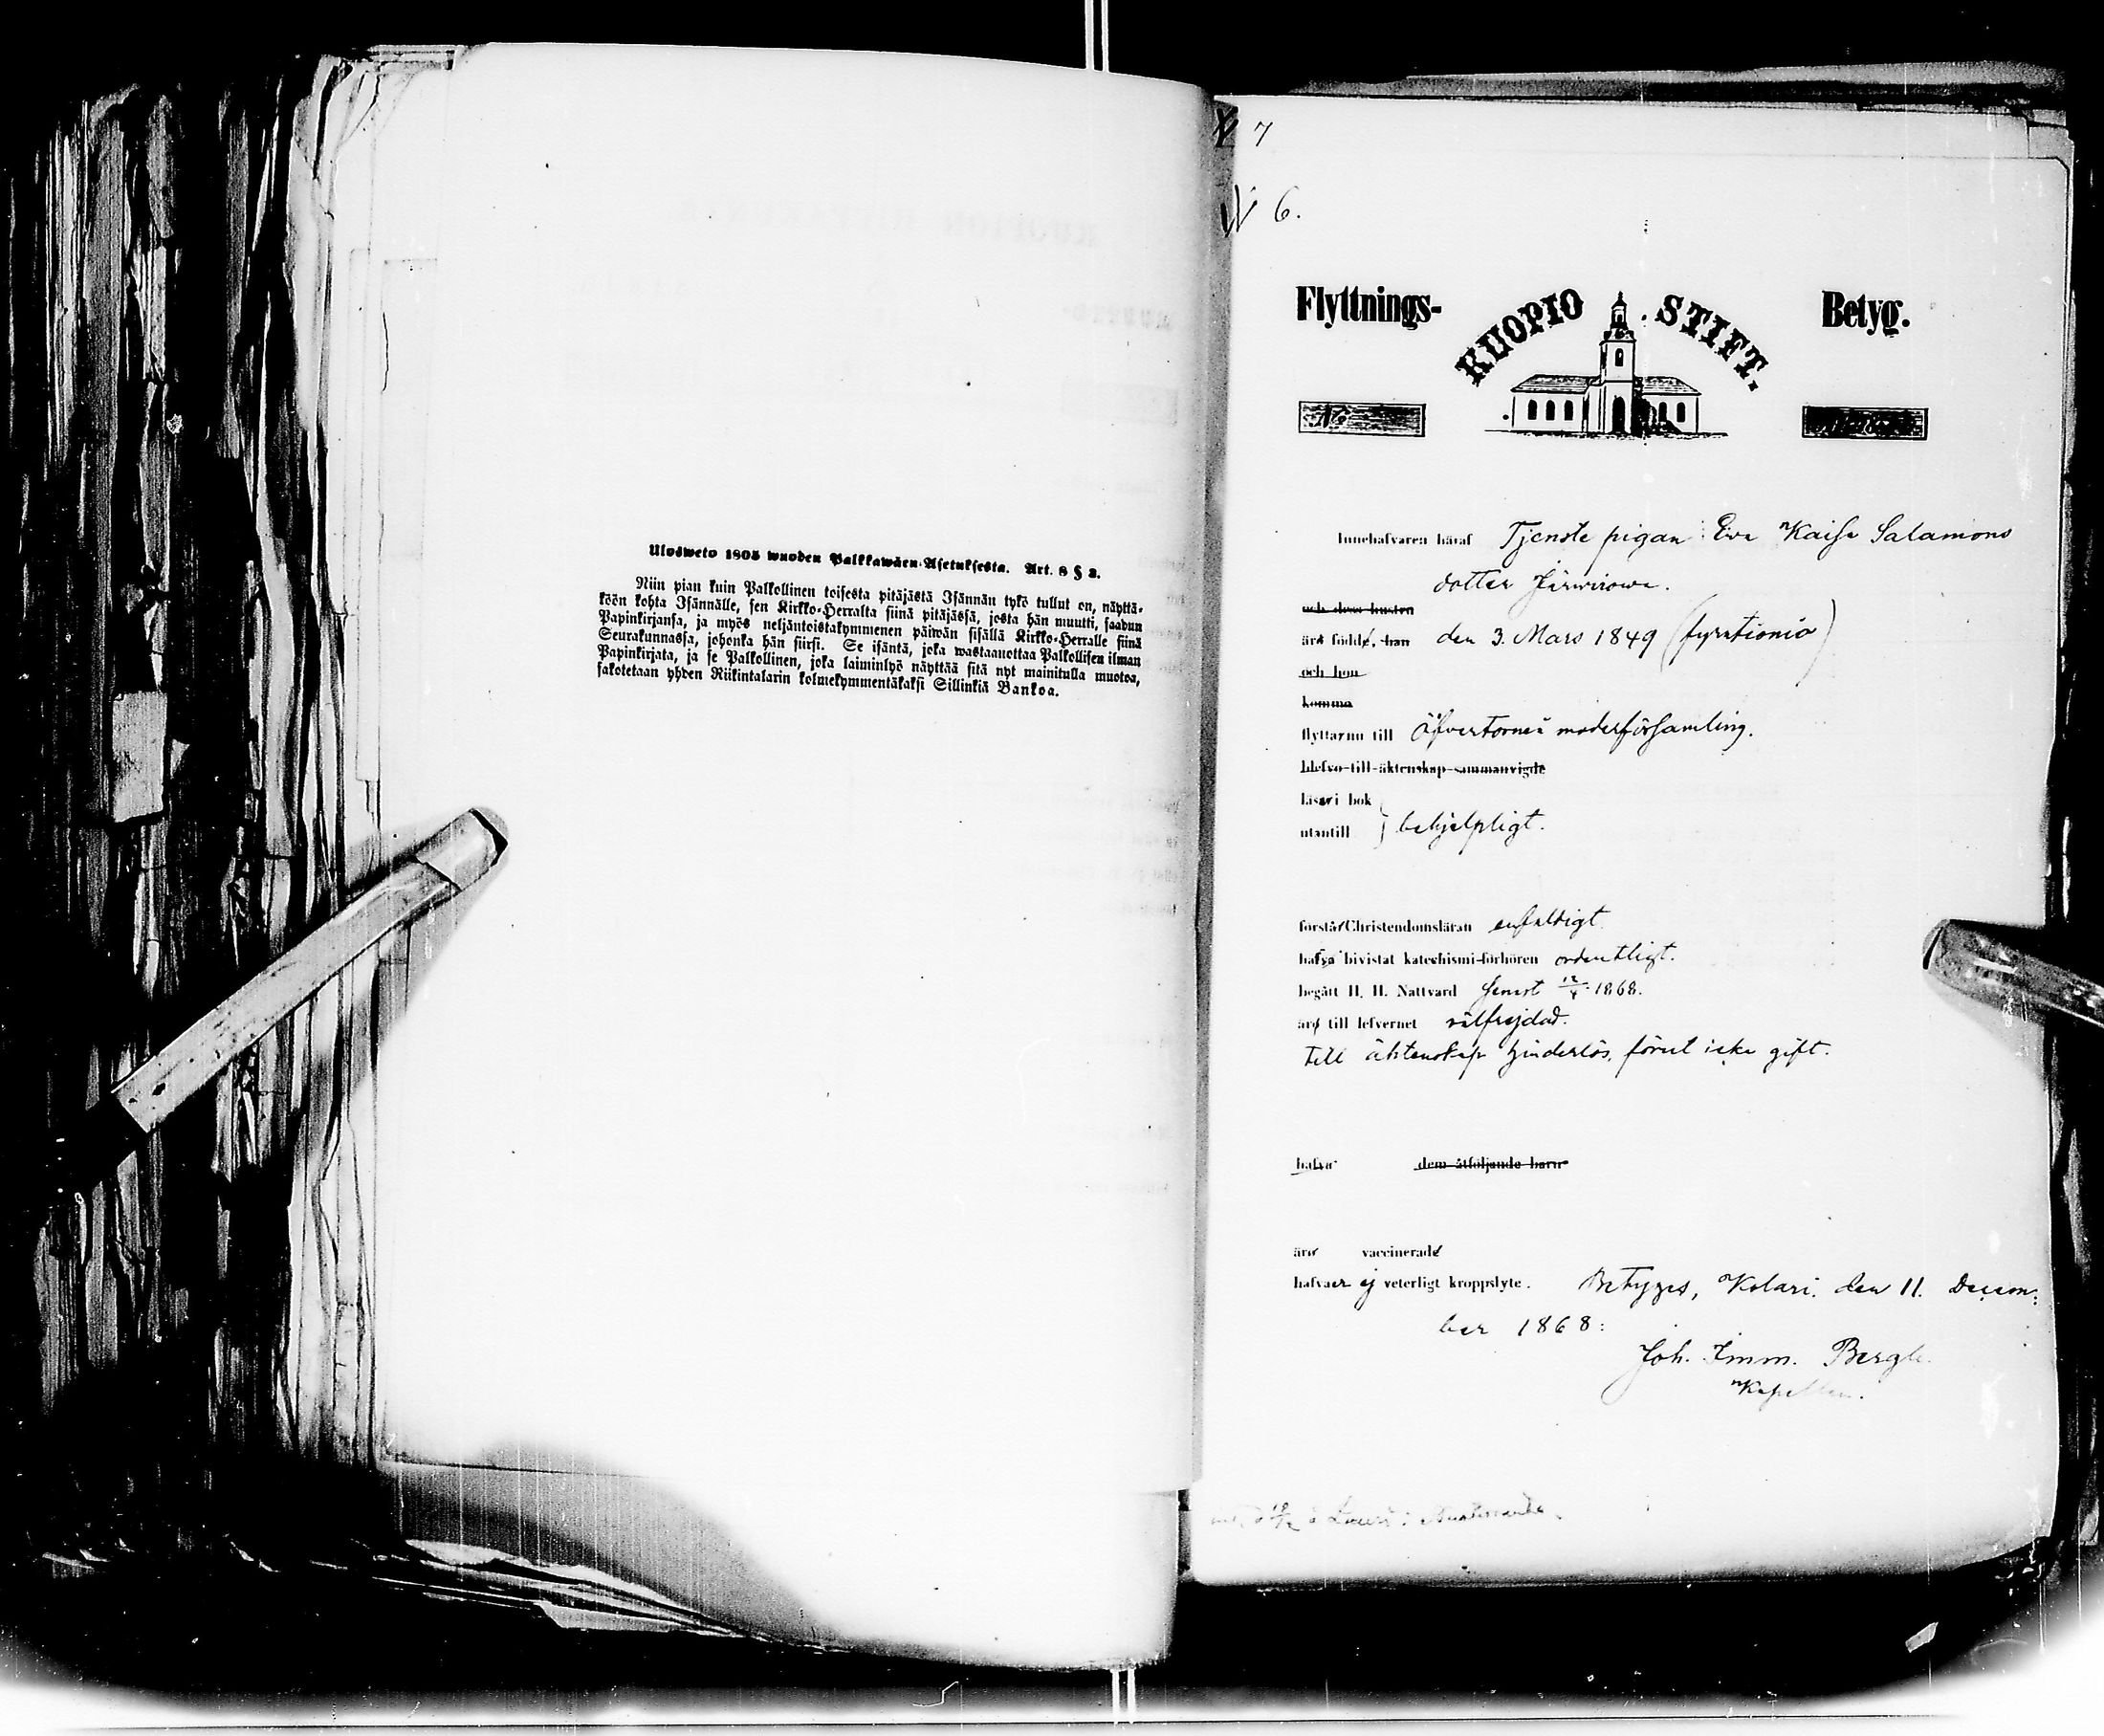 Ulosweto 1805 wuoden Palkkawäen-Asetuksesta. Art. 8 § 2.
Niin pian kuin Palkollinen toisesta pitäjästä Isännän tykö tullut on, näyttä-
köön kohta Isännälle, sen Kirkko-Herralta siinä pitäjässä, josta hän muutti, saadun
Papinkirjansa, ja myös neljäntoistakymmenen päiwän sisällä Kirkko-Herralle siinä
Seurakunnassa, johonka hän siirsi. Se isäntä, joka wastaanottaa Palkollisen ilman
Papinkirjata, ja se Palkollinen, joka laiminlyö näyttää sitä nyt mainitulla muotoa,
sakotetaan yhden Riikintalarin kolmekymmentäkaksi Sillinkiä Bankoa.
7
N 6.
Flyttnings- KUOPIO STIFT. Betyg.
No
Innehafvaren häraf Tjenste pigan Eva Kaisa Salamons
dotter Järwirowa.
och dess hustru
äro födde, han den 3. Mars 1849 (fyrationio)
och hon
komma
flyttarnu till Öfvertorneå moderförsamling.
blefvo till äktenskap sammanvigde
läser i bok
utantill } behjelpligt.
förstår Christendomsläran enfaldigt
hafva bivistat katechismi-förhören ordentligt.
begått H. H. Nattvard senast 12/4 1868.
äro till lefvernet välfrejdad.
till äktenskap hinderlös, förut icke gift.
hafva dem åtföljande barn
äro vaccinerade
hafva ej veterligt kroppslyte. Betygas, Kolari. den 11. Decem:
ber 1868:
Joh. Imm. Bergh.
Kapellan.